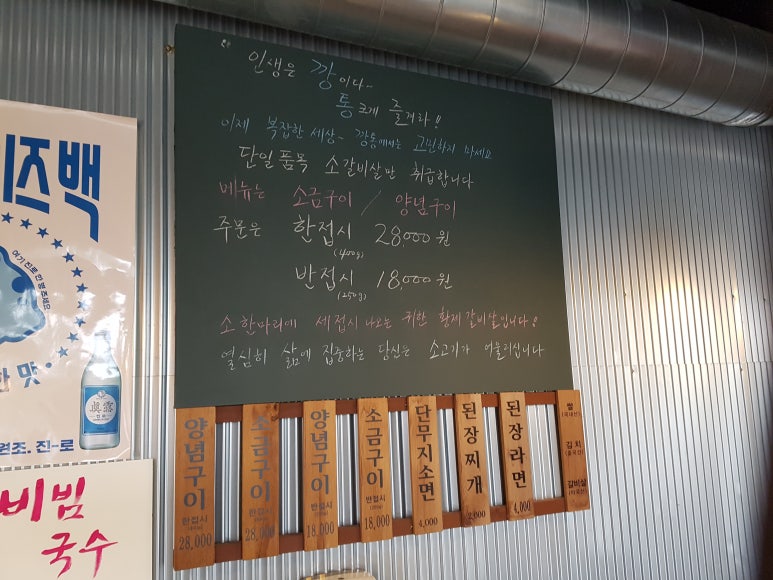 인생은 깡이다~
통크게 즐겨라!!
이제 복잡한 세상~ 깡통에서는 고민하지 마세요
단일품목 소갈비살만 취급합니다
메뉴는 소금구이 / 양념구이
주문은 한접시 28,000원
(400g)
반접시 18,000원
(250g)
소한마리에 세접시 나오는 귀한 황제갈비살입니다!
열심히 삶에 집중하는 당신은 소고기가 어울리십니다
양념구이 한접시 28,000
소금구이 한접시 28,000
양념구이 반접시 18,000
소금구이 반접시 18,000
단무지소면 4,000
된장찌개 2,000
된장라면 4,000
쌀 (국내산)
김치 (중국산)
갈비살
이즈백
여기 진로 한 병 주세요
한 맛
眞露
원조. 진-로
비빔
국수